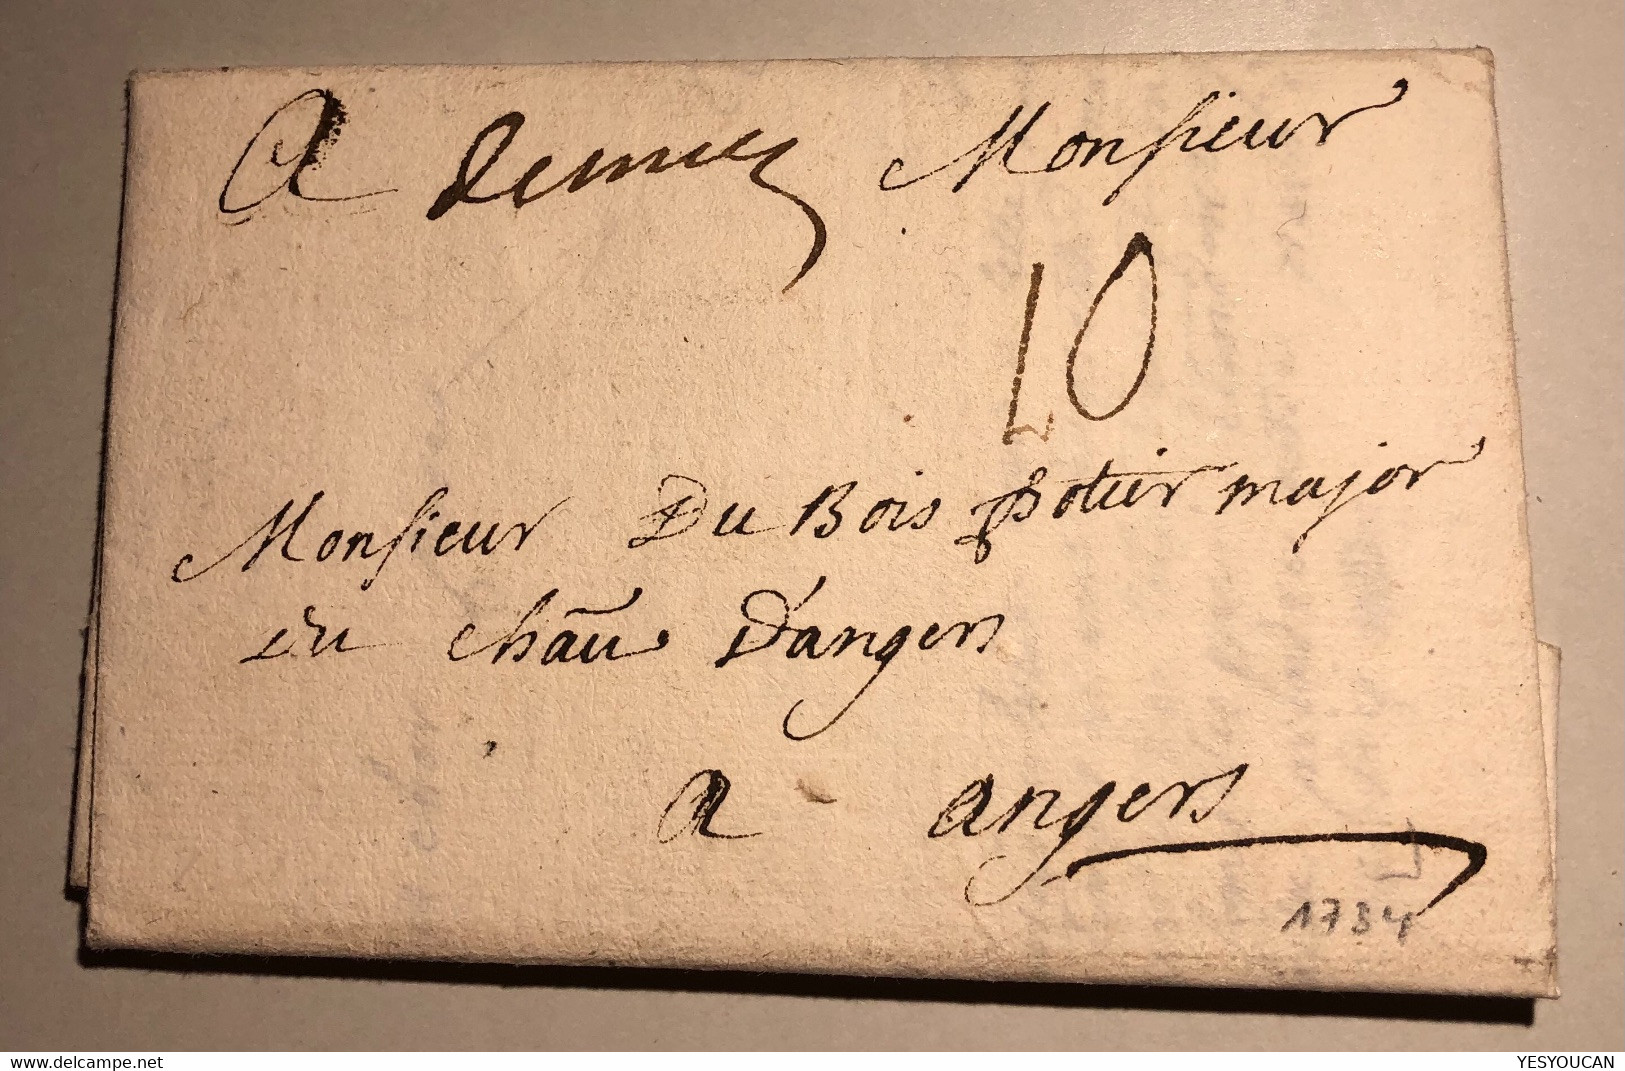 A Monsieur
10
Monsieur Du Bois potier major
du chãu D'angers
a angers
1734
delcampe.net
YESYOUCAN